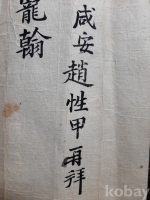 咸安趙性甲再拜
寵翰
kobay